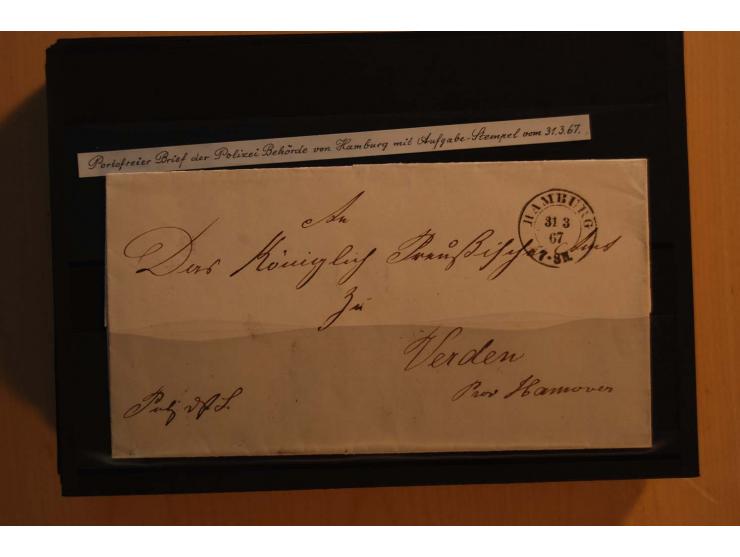 Portofreier Brief der Polizei Behörde von Hamburg mit Aufgabe-Stempel vom 31.3.67.
HAMBURG
31 3
67
An
Das Königlich Preußische Amt
Zu
Verden
Prov Hannover